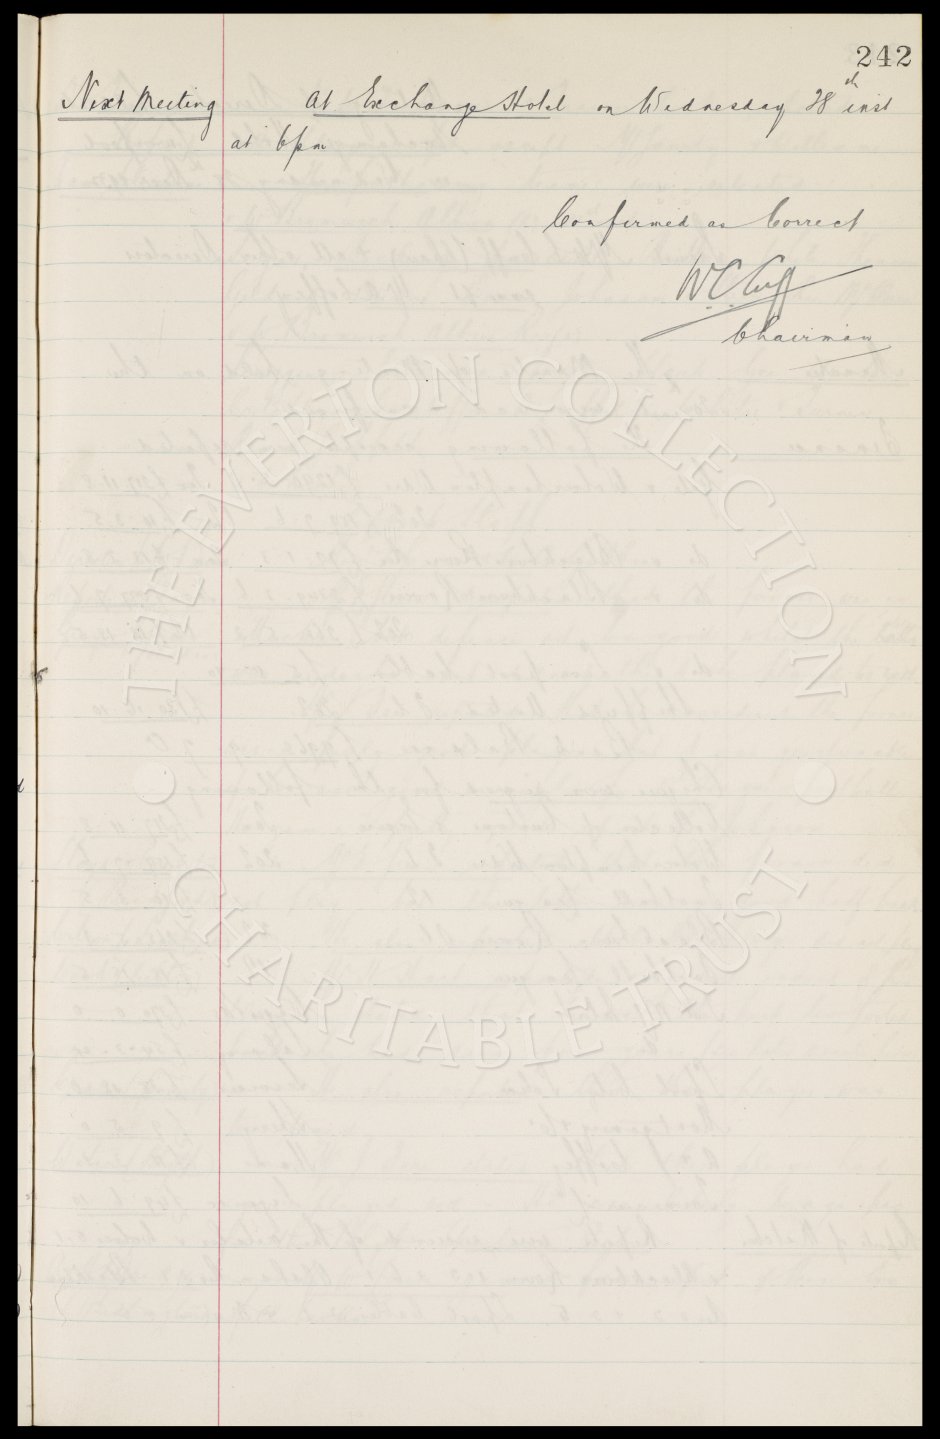 242
Next Meeting at Exchange Hotel on Wednesday 28th inst
at 6pm
Confirmed as Correct
W C Cuff
Chairman
THE EVERTON COLLECTION
CHARITABLE TRUST